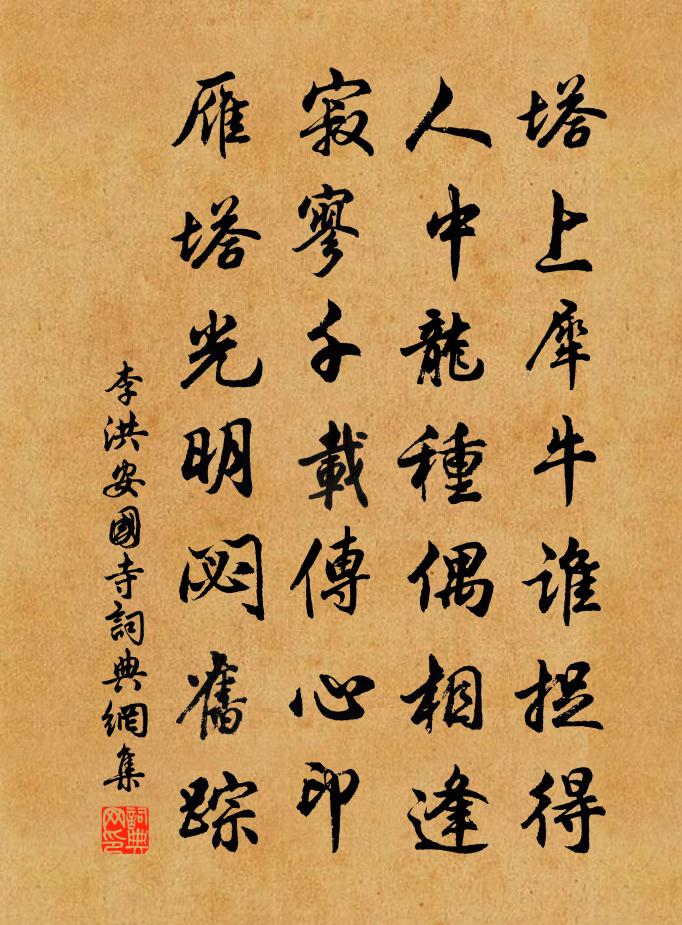 塔上犀牛誰捉得
人中龍種偶相逢
寂寥千載傳心印
雁塔光明閟舊踪
李洪安國寺詞典網集
詞典网印